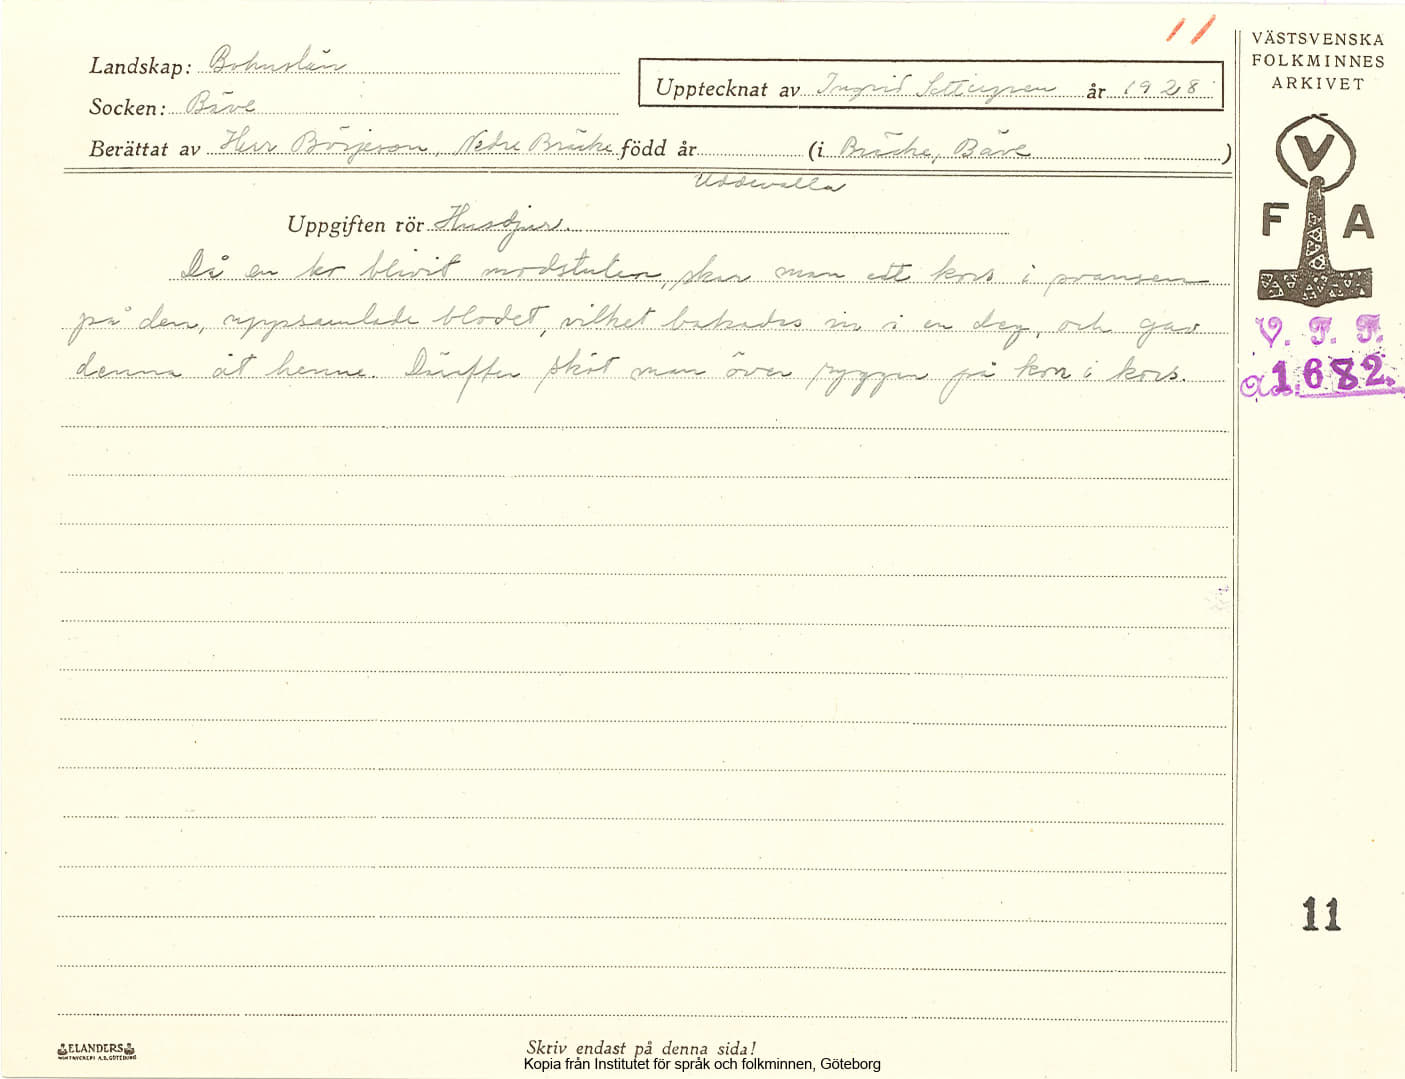 11
VÄSTSVENSKA
FOLKMINNES
ARKIVET
Landskap: Bohuslän
Upptecknat av Ingrid år 1928
Socken: Bäve
Berättat av Herr Börjeson, Nedre Bräcke född år (i Bräcke, Bäve)
Uddevalla
V
F A
Uppgiften rör Husdjur.
Då en ko blivit modstulen, skar man ett kors i svansen
på den, uppsamlade blodet, vilket bakades in i en deg, och gav
denna åt henne. Därefter sköt man över ryggen på kon i kors.
V. F. F.
1682.
11
ELANDERS
Skriv endast på denna sida!
Kopia från Institutet för språk och folkminnen, Göteborg